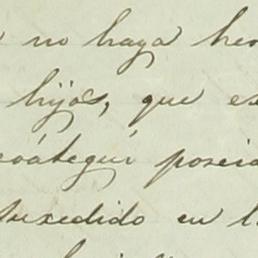 no haya her
hijos, que es
oátegui poseid
suxedido en l